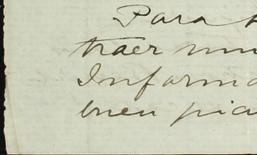 Para
traer
Informa
buen pia